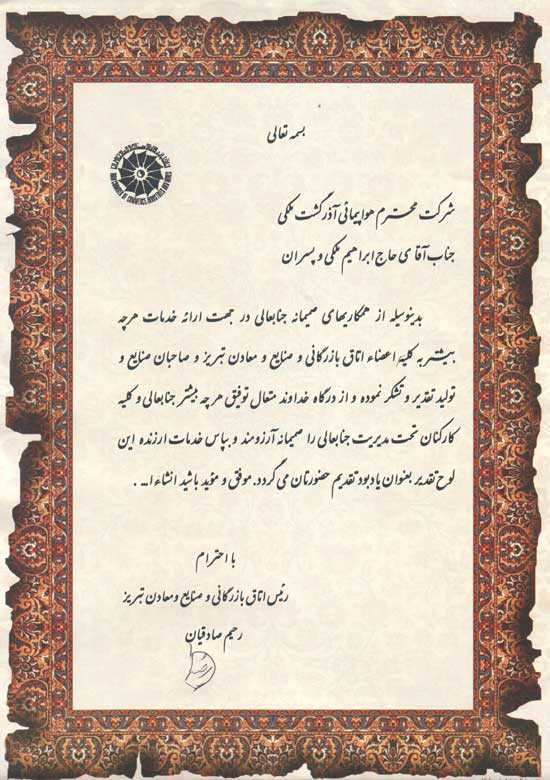 بسمه تعالی
شرکت محترم هواپیمائی آذرگشت ملکی
جناب آقای حاج ابراهیم ملکی و پسران
بدینوسیله از همکاریهای صمیمانه جنابعالی در جهت ارائه خدمات هرچه
بیشتر به کلیهٔ اعضاء اتاق بازرگانی و صنایع و معادن تبریز و صاحبان صنایع و
تولید تقدیر و تشکر نموده و از درگاه خداوند متعال توفیق هرچه بیشتر جنابعالی و کلیه
کارکنان تحت مدیریت جنابعالی را صمیمانه آرزومند و بپاس خدمات ارزنده این
لوح تقدیر بعنوان یادبود تقدیم حضورتان می گردد. موفق و مؤید باشید انشاء ا... .
با احترام
رئیس اتاق بازرگانی و صنایع و معادن تبریز
رحیم صادقیان